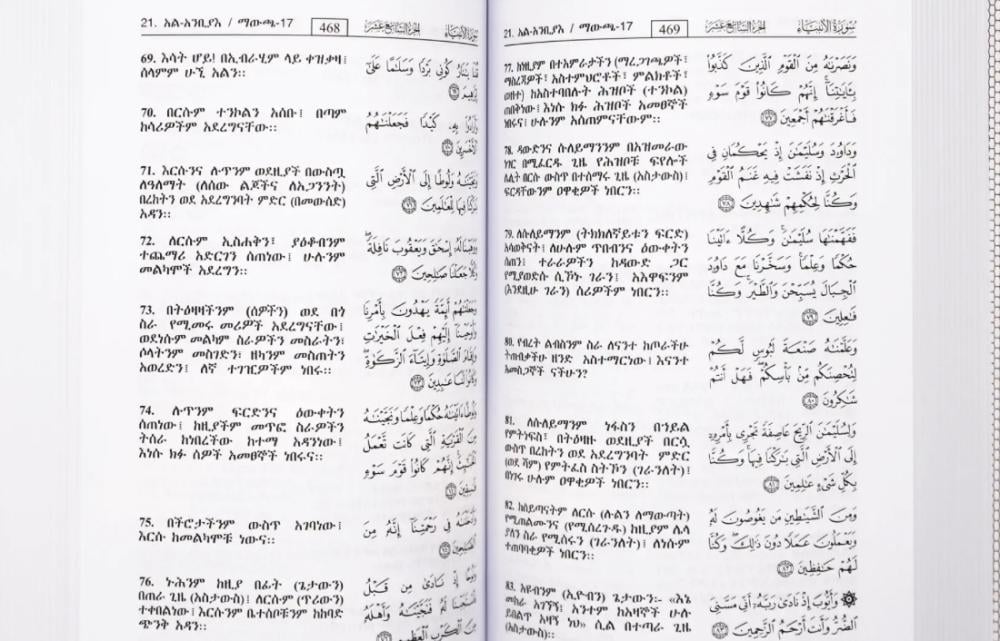 21. አል-አንቢያእ / ማውጫ-17 468 الجزء السابع عشر
69. እሳት ሆይ! በኢብራሂም ላይ ቀዝቃዛ፤
ሰላምም ሁኚ አልን።
70. በርሱም ተንኮልን አሰቡ፤ በጣም
ከሳሪዎችም አደረግናቸው።
71. እርሱንና ሉጥንም ወደዚያች በውስጧ
ለዓለማት (ለሰው ልጆችና ለአጋንንት)
በረከትን ወደ አደረግንባት ምድር (በመውሰድ)
አዳን።
72. ለርሱም ኢስሐቅን፣ ያዕቆብንም
ተጨማሪ አድርገን ሰጠነው፤ ሁሉንም
መልካሞች አደረግን።
73. በትዕዛዛችንም (ሰዎችን) ወደ በጎ
ስራ የሚመሩ መሪዎች አደረግናቸው፤
ወደነሱም መልካም ስራዎችን መስራትን፣
ሶላትንም መስገድን፣ ዘካንም መስጠትን
አወረድን፤ ለኛ ተገዢዎችም ነበሩ።
74. ሉጥንም ፍርድንና ዕውቀትን
ሰጠነው፤ ከዚያችም መጥፎ ስራዎችን
ትሰራ ከነበረችው ከተማ አዳንነው፤
እነሱ ክፉ ሰዎች አመፀኞች ነበሩና።
75. በችሮታችንም ውስጥ አገባነው፤
እርሱ ከመልካሞቹ ነውና።
76. ኑሕንም ከዚያ በፊት (ጌታውን)
በጠራ ጊዜ (አስታውስ)፤ ለርሱም (ጥሪውን)
ተቀበልነው፤ እርሱንም ቤተሰቦቹንም ከከባድ
ጭንቅ አዳን።
إِبْرَاهِيمَ ٦٩
وَأَرَادُوا۟ بِهِۦ كَيْدًا فَجَعَلْنَـٰهُمُ
ٱلْأَخْسَرِينَ ٧٠
وَنَجَّيْنَـٰهُ وَلُوطًا إِلَى ٱلْأَرْضِ ٱلَّتِى
بَـٰرَكْنَا فِيهَا لِلْعَـٰلَمِينَ ٧١
وَوَهَبْنَا لَهُۥٓ إِسْحَـٰقَ وَيَعْقُوبَ نَافِلَةً ۖ
وَكُلًّا جَعَلْنَا صَـٰلِحِينَ ٧٢
وَجَعَلْنَـٰهُمْ أَئِمَّةً يَهْدُونَ بِأَمْرِنَا
وَأَوْحَيْنَآ إِلَيْهِمْ فِعْلَ ٱلْخَيْرَٰتِ
وَإِقَامَ ٱلصَّلَوٰةِ وَإِيتَآءَ ٱلزَّكَوٰةِ ۖ
وَكَانُوا۟ لَنَا عَـٰبِدِينَ ٧٣
وَلُوطًا ءَاتَيْنَـٰهُ حُكْمًا وَعِلْمًا وَنَجَّيْنَـٰهُ
مِنَ ٱلْقَرْيَةِ ٱلَّتِى كَانَت تَّعْمَلُ
ٱلْخَبَـٰٓئِثَ ۗ إِنَّهُمْ كَانُوا۟ قَوْمَ سَوْءٍ
فَـٰسِقِينَ ٧٤
وَأَدْخَلْنَـٰهُ فِى رَحْمَتِنَآ ۖ إِنَّهُۥ مِنَ
ٱلصَّـٰلِحِينَ ٧٥
وَنُوحًا إِذْ نَادَىٰ مِن قَبْلُ
فَٱسْتَجَبْنَا لَهُۥ فَنَجَّيْنَـٰهُ وَأَهْلَهُۥ
مِنَ ٱلْكَرْبِ ٱلْعَظِيمِ
21. አል-አንቢያእ / ማውጫ-17 469 الجزء السابع عشر سورة الأنبياء
77. ከእዚያም በተአምራታችን (ማረጋገጫዎች፣
ማስረጃዎች፣ አስተምህሮቶች፣ ምልክቶች፣
ወዘተ) ከአስተባበሉት ሕዝቦች (ተንኮል)
ጠበቅነው፤ እነሱ ክፉ ሕዝቦች አመፀኞች
ነበሩና፤ ሁሉንም አሰጠምናቸውም።
78. ዳውድንና ሱለይማንንም በአዝመራው
ነገር በሚፈርዱ ጊዜ የሕዝቦቹ ፍየሎች
ሌሊት በርሱ ውስጥ በተሰማሩ ጊዜ (አስታውስ)፤
ፍርዳቸውንም ዐዋቂዎች ነበርን።
79. ለሱለይማንም (ትክክለኛይቱን ፍርድ)
አሳወቅናት፤ ለሁሉም ጥበብንና ዕውቀትን
ሰጠን፤ ተራራዎችን ከዳውድ ጋር
የሚያወድሱ ሲኾኑ ገራን፤ አእዋፍንም
(እንደዚሁ ገራን) ሰሪዎችም ነበርን።
80. የብረት ልብስንም ስራ ለናንተ ከጦራችሁ
ትጠብቃችሁ ዘንድ አስተማርነው፤ እናንተ
አመስጋኞች ናችሁን?
81. ለሱለይማንም ነፋስን በኀይል
የምትነፍስ፣ በትዕዛዙ ወደዚያች በርሷ
ውስጥ በረከትን ወደ አደረግንባት ምድር
(ወደ ሻም) የምትፈስ ስትኾን (ገራንለት)፤
በነገሩ ሁሉም ዐዋቂዎች ነበርን።
82. ከሰይጣናትም ለርሱ (ሉልን ለማውጣት)
የሚጠልሙንና (የሚሰረጉዱ) ከዚያም ሌላ
ያለን ስራ የሚሰሩን (ገራንለት)፤ ለነሱም
ተጠባባቂዎች ነበርን።
83. አዩብንም (ኢዮብን) ጌታውን፦ «እኔ
መከራ አገኘኝ፤ አንተም ከአዛኞች ሁሉ
ይበልጥ አዛኝ ነህ» ሲል በተጣራ ጊዜ
(አስታውስ)።
وَنَصَرْنَـٰهُ مِنَ ٱلْقَوْمِ ٱلَّذِينَ كَذَّبُوا۟
بِـَٔايَـٰتِنَآ ۚ إِنَّهُمْ كَانُوا۟ قَوْمَ سَوْءٍ
فَأَغْرَقْنَـٰهُمْ أَجْمَعِينَ ٧٧
وَدَاوُۥدَ وَسُلَيْمَـٰنَ إِذْ يَحْكُمَانِ فِى
ٱلْحَرْثِ إِذْ نَفَشَتْ فِيهِ غَنَمُ ٱلْقَوْمِ
وَكُنَّا لِحُكْمِهِمْ شَـٰهِدِينَ ٧٨
فَفَهَّمْنَـٰهَا سُلَيْمَـٰنَ ۚ وَكُلًّا ءَاتَيْنَا
حُكْمًا وَعِلْمًا ۚ وَسَخَّرْنَا مَعَ دَاوُۥدَ
ٱلْجِبَالَ يُسَبِّحْنَ وَٱلطَّيْرَ ۚ وَكُنَّا
فَـٰعِلِينَ ٧٩
وَعَلَّمْنَـٰهُ صَنْعَةَ لَبُوسٍ لَّكُمْ
لِتُحْصِنَكُم مِّنۢ بَأْسِكُمْ ۖ فَهَلْ أَنتُمْ
شَـٰكِرُونَ ٨٠
وَلِسُلَيْمَـٰنَ ٱلرِّيحَ عَاصِفَةً تَجْرِى بِأَمْرِهِۦٓ
إِلَى ٱلْأَرْضِ ٱلَّتِى بَـٰرَكْنَا فِيهَا ۚ وَكُنَّا
بِكُلِّ شَىْءٍ عَـٰلِمِينَ ٨١
وَمِنَ ٱلشَّيَـٰطِينِ مَن يَغُوصُونَ لَهُۥ
وَيَعْمَلُونَ عَمَلًا دُونَ ذَٰلِكَ ۖ وَكُنَّا
لَهُمْ حَـٰفِظِينَ ٨٢
وَأَيُّوبَ إِذْ نَادَىٰ رَبَّهُۥٓ أَنِّى مَسَّنِىَ
ٱلضُّرُّ وَأَنتَ أَرْحَمُ ٱلرَّٰحِمِينَ ٨٣